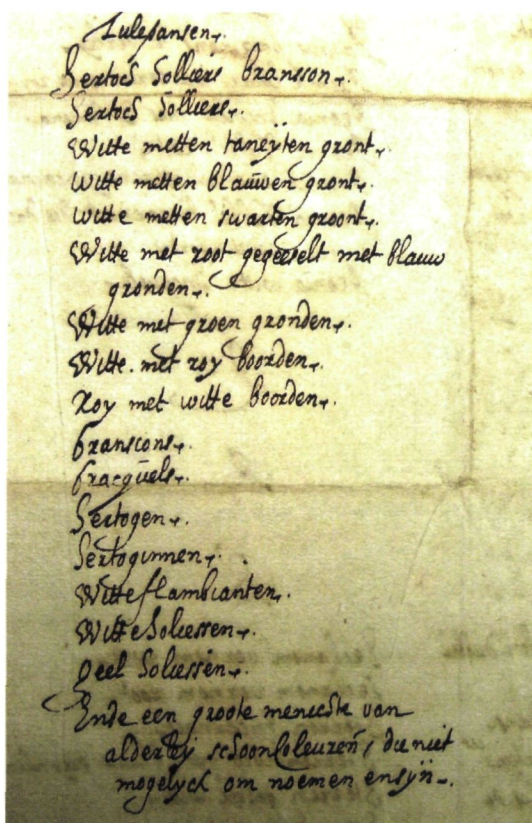 Tulepansen.
Hertoch Solliers bransson.
Hertoch Solliers.
Witte metten taneÿten gront.
Witte metten blaüwen gront.
witte metten swarten groont.
Witte met root gegeeselt met blauw
gronden.
Witte met groen gronden.
Witte met roy boorden.
Roy met witte boorden.
branscons.
bracqüels.
Hertogen.
Hertoginnen.
Witte flambianten.
Witte Solcessen.
Geel Solcessen.
Ende een groote meniechte van
alderleÿ schoon Coleuren, die niet
mogelyck om noemen ensÿn.